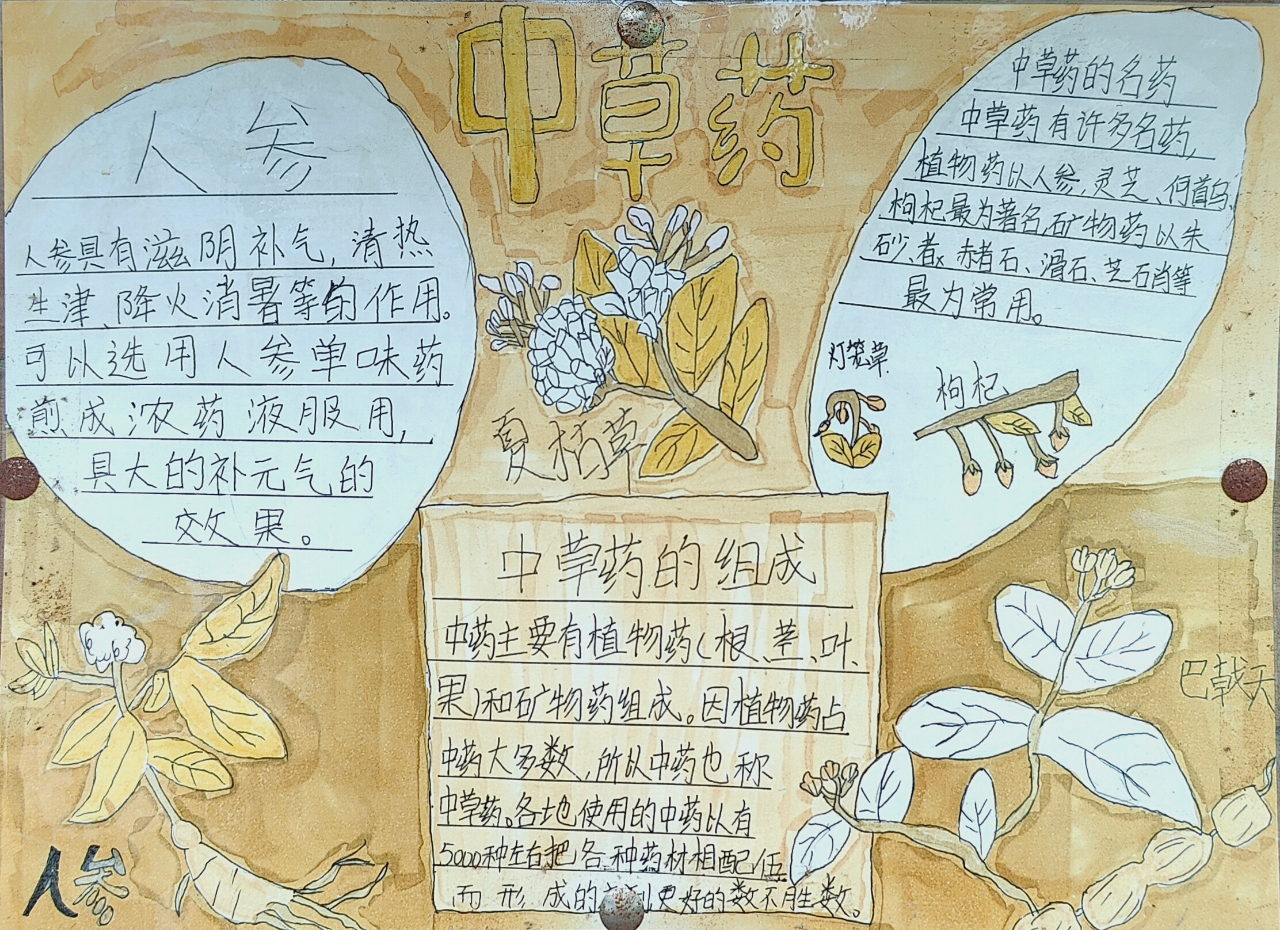 中草药
人参
人参具有滋阴补气,清热
生津、降火消暑等的作用。
可以选用人参单味药
煎成浓药液服用,
具大的补元气的
效果。
中草药的名药
中草药有许多名药,
植物药以人参,灵芝、何首乌、
枸杞最为著名,矿物药以朱
砂、赭石、滑石、芒硝等
最为常用。
灯笼草
枸杞
夏枯草
中草药的组成
中药主要有植物药(根、茎、叶、
果)和矿物药组成。因植物药占
中药大多数,所以中药也称
中草药。各地使用的中药以有
5000种左右把各种药材相配伍
而形成的 更好的数不胜数。
巴戟天
人参